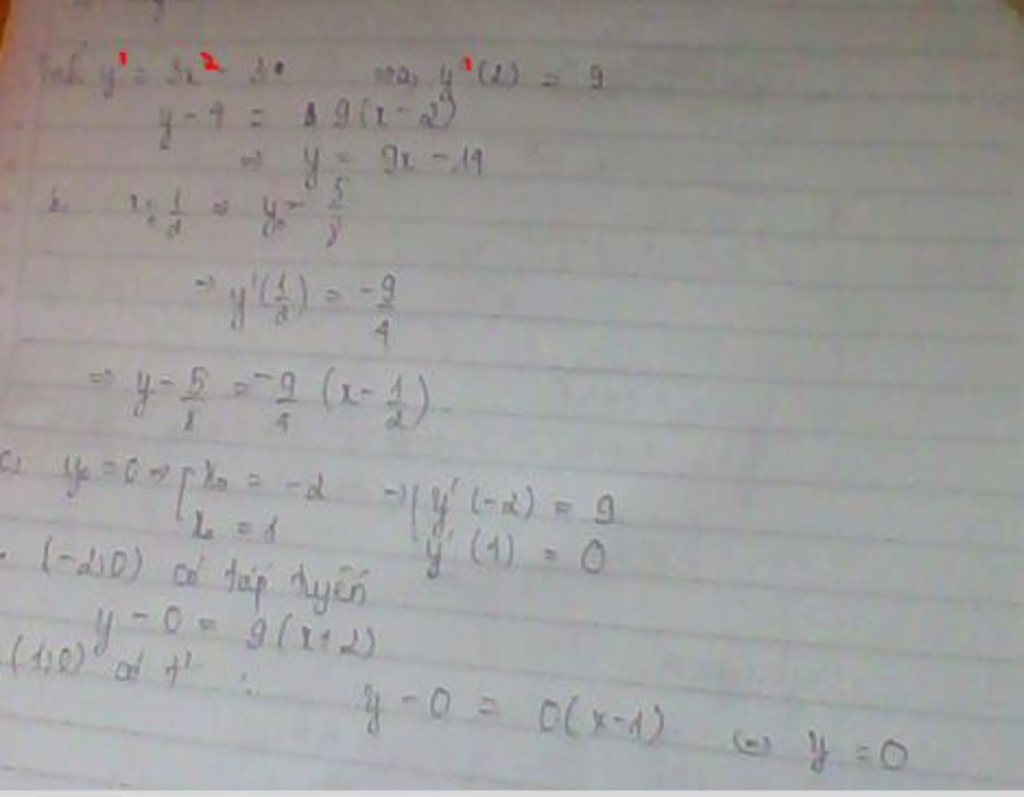 y' = 3x² - 3 y'(2) = 9
y - 4 = 9(x - 2)
⇒ y = 9x - 14
x₀ = 1/2 ⇒ y₀ = 5/8
⇒ y'(1/2) = -9/4
⇒ y - 5/8 = -9/4 (x - 1/2)
c, y₀ = 0 ⇒ [x₀ = -2 ⇒ [y'(-2) = 9
x₀ = 1 y'(1) = 0
(-2;0) có tiếp tuyến
y - 0 = 9(x + 2)
(1;0) có t² :
y - 0 = 0(x - 1) ⇔ y = 0